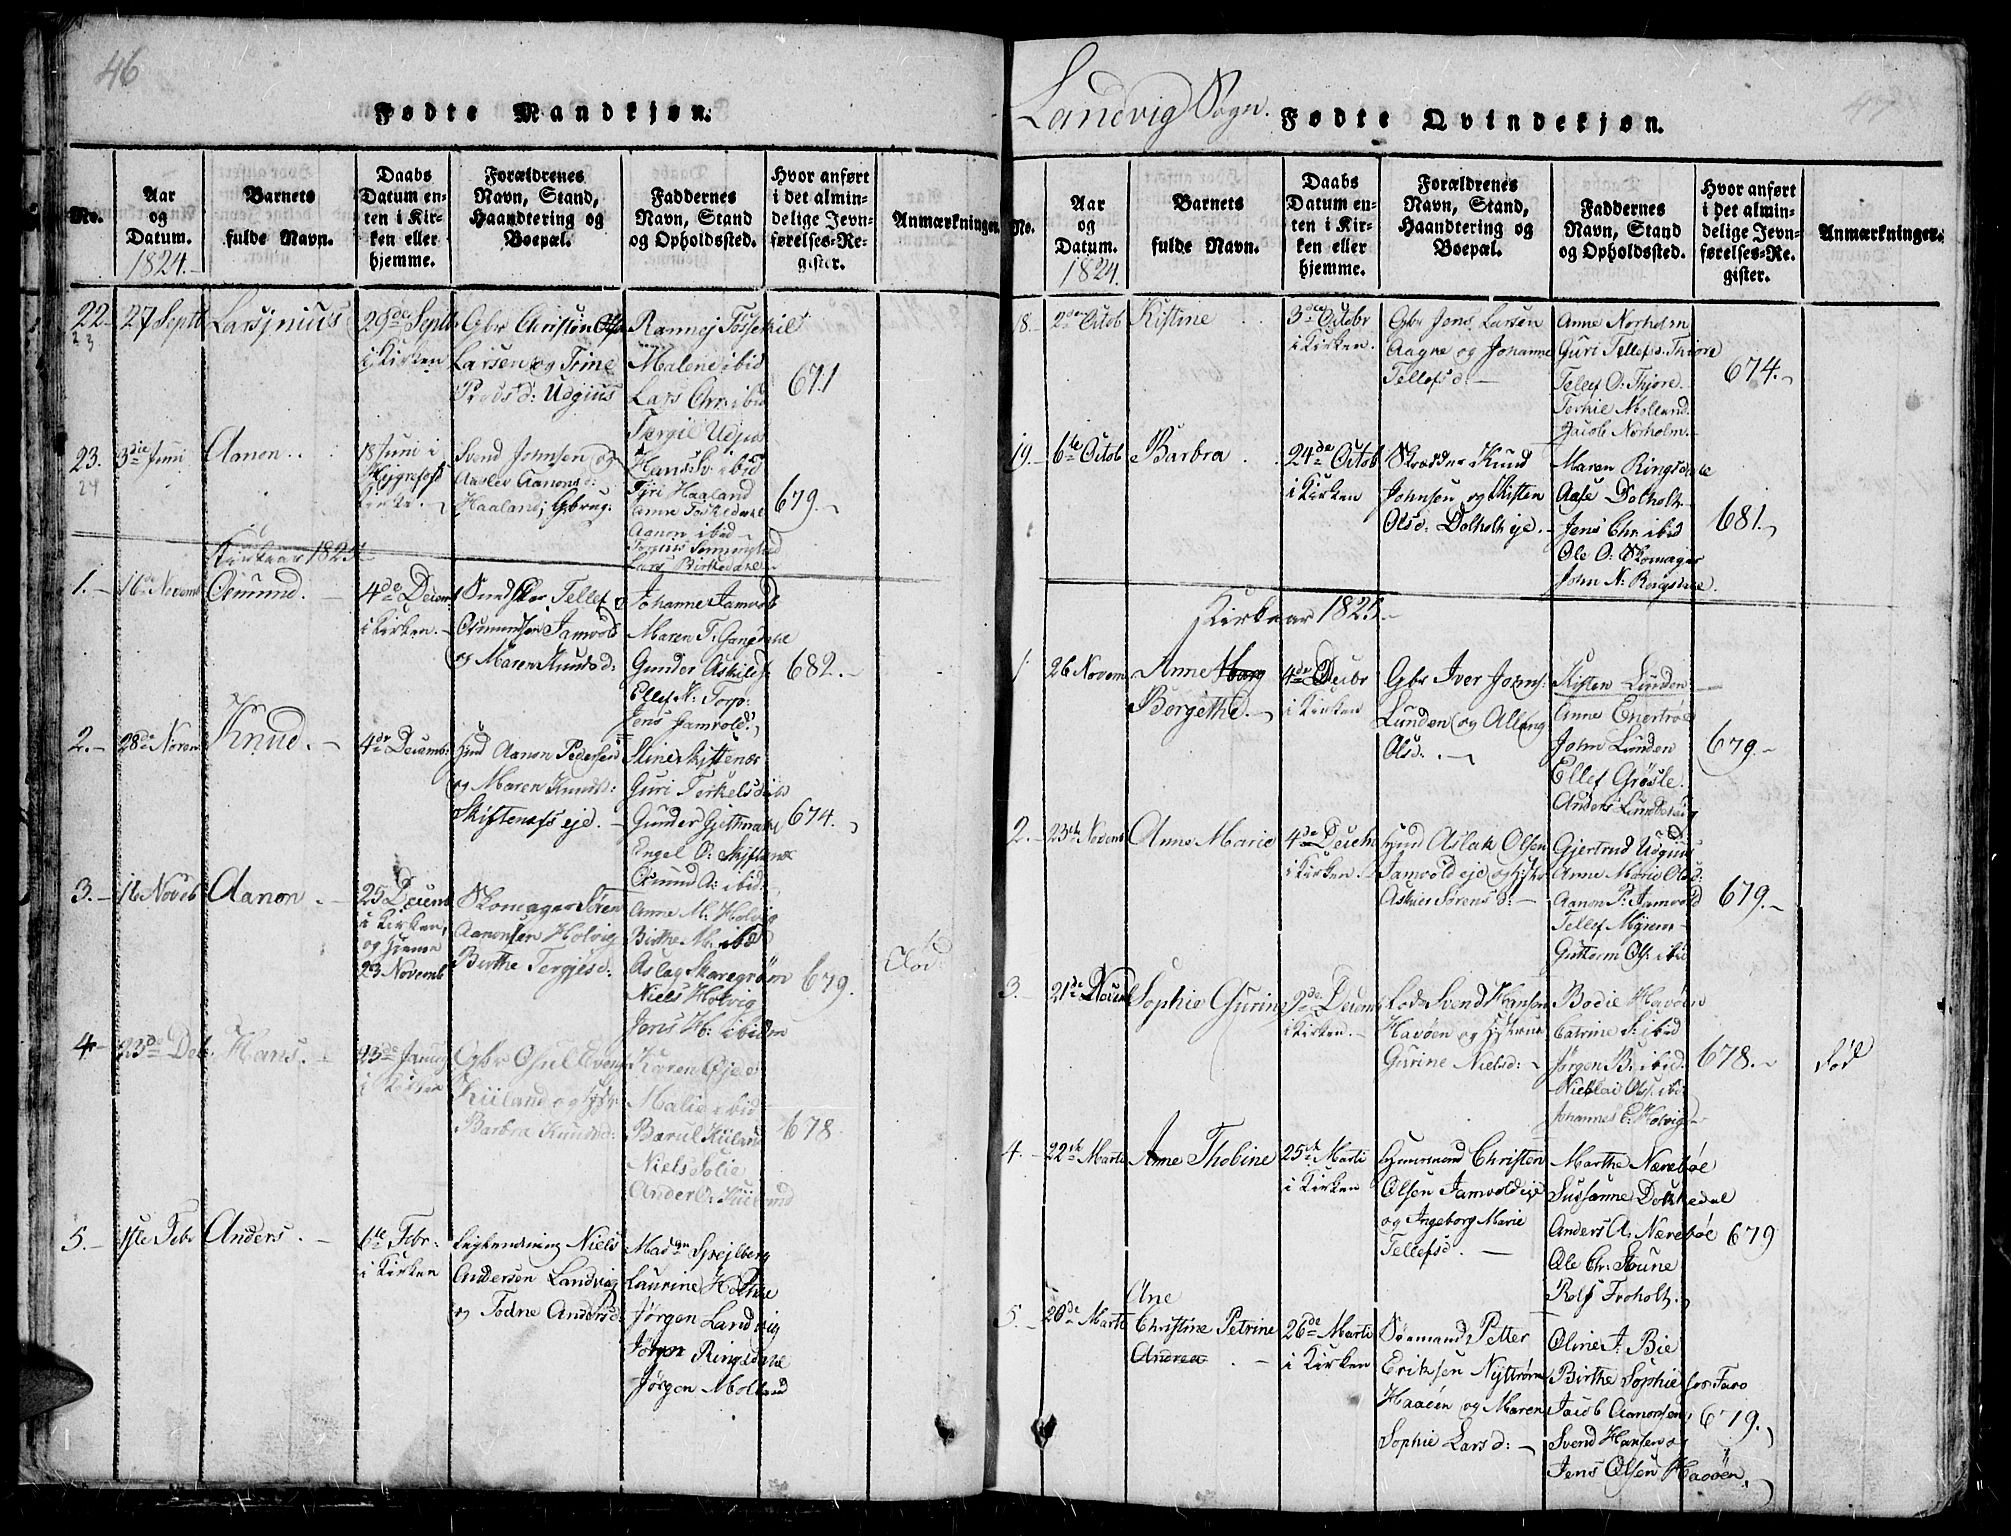 46
Fødte Mandkjøn.
No.
Aar
og
Datum.
1824.
Barnets
fulde Navn.
Daabs
Datum en-
ten i Kir-
ken eller
hjemme.
Forældrenes
Navn, Stand,
Haandtering og
Boepæl.
Faddernes
Navn, Stand
og Opholdssted.
Hvor anført
i det almin-
delige Jevn-
førelses-Re-
gister.
Anmærkninger.
22
23
27 Septb
29de Septb
i Kirken
Gbr Christen
Larsen og Trine
Malene ibid
Lars Chr: ibid
671
23.
24
3die Juni
Aanon
18 Juni i
Kirke
Svend Johnsen og
Aaslev Aanonsd:
Haaland, Gbrug:
Hans Sv: ibid
Tjri Haaland
Aanon ibid
Lars Birkedahl
679.
Kirkeaar 1825
1.
16de Novemb
Osmund.
4de Decem
i Kirken.
Tellef
Osmundsen Jamvold
og Maren Knudsd:
Johanne Jamvold
Maren T:
Gunder
Ellef N:
Jens Jamvold.
682.
2.
28de Novem
Knud.
4de Decemb:
Hmd Aanon Pedersen
og Maren Knudsd:
Skiftenæs eje.
Stine Skiftenæs
Guri Terkelsd
Gunder
Engel O: Skiftenæ
Osmund A: ibid.
674.
3.
16 Novb
Aanon
25 Decemb
i Kirken,
og hjeme
23 Novemb
Skomager Søren
Aanonsen Holvig
Birthe Tergjesd:
Anne M: Holvig
Birthe M: ibid
Aslag Skaregrøm
Niels Holvig
Jens H: ibidm
679.
Død
4
23de Deb.
Hans.
i Kirken
Gbr Osul Evens
Kiiland og
Barbra Knudsd:
Karen Øjede
Malie ibid
Barul Kiiland
Niels Solie
Anders O: Kiiland
678
5.
1ste Febr
Anders.
6te Febr:
i Kirken
Niels
Andersen Landvig
og Todne Andersd:
Madme Spejlberg
Laurine Holthe
Jørgen Landvig
Jørgen Ringsdahle
Jørgen Molland
Landvig Sogn.
47
Fødte Qvindekjøn.
No.
Aar
og
Datum.
1824.
Barnets
fulde Navn.
Daabs
Datum en-
ten i Kir-
ken eller
hjemme.
Forældrenes
Navn, Stand,
Haandtering og
Boepæl.
Faddernes
Navn, Stand
og Opholdssted.
Hvor anført
i det almin-
delige Jevn-
førelses-Re-
gister.
Anmærkninger.
18.
2den Octob
Kistine
3die Octobr
i Kirken.
Gbr Jens Larsen
Aagre og Johanne
Tellefsd:
Anne Norholm
Guri Tellefsd: Thjore
Tellef O: Thjore.
Terkil Molland.
Jacob Norholm.
674.
19.
6te Octob
Barbra
24de Octob
i Kirken
Skredder Knud
Johnsen og Kisten
Olsd: Dolholt eje.
Maren Ringsdale
Aase Dolholt
Jens Chr: ibid
Ole O: Skomager
John N: Bergsdale.
681.
Kirkeaar 1825.
1
26 Novem
Anne Marg
Borgethe.
4de Decbr
i Kirken
Gbr Iver Johns:
Lunden og
Olsd:
Kisten Lunden
Anne Enertrøe
John Lunden
Ellef Grøsle.
Anders
679.
2.
23de Novemb
Anne Marie
4de Decbr
i Kirken.
Hmd Aslak Olsen
Jamvold eje og
Sørensd:
Gjertrud Udgius
Anne Marie Olsd:
Aanon P: Jamvold
Tellef
Guttorm Ols: ibid
679.
3.
21de
Sophie Gurine
Decemb
i Kirken.
Lods Svend Hansen
Havøen og Hustrue
Gurine Nielsd:
Bodie Havøen
Catrine S: ibid
Jørgen B: ibid.
Nicolai Ols: ibid
Johannes C: Holvig
678.
Død
4.
22de Marti
Anne Thobine
25de Marti
i Kirken
Huusmand Christen
Olsen Jamvold eje
og Ingeborg Marie
Tellefsd.
Marthe Nærebøe
Susanne Dokkedal
Anders A: Nærebøe
Ole Chr: Stuene
Rolf Froholt.
679
5.
20de Marti
Ane
Christine Petrine
Andrea
26de Marti
i Kirken
Sømand Petter
Eriksen Nystrøm
Haaøen og Maren
Sophie Larsd:
Oline J: Bie
Birthe Sophie
Jacob Aanonsen,
Svend Hansen og
Jens Olsen Havøen.
679.